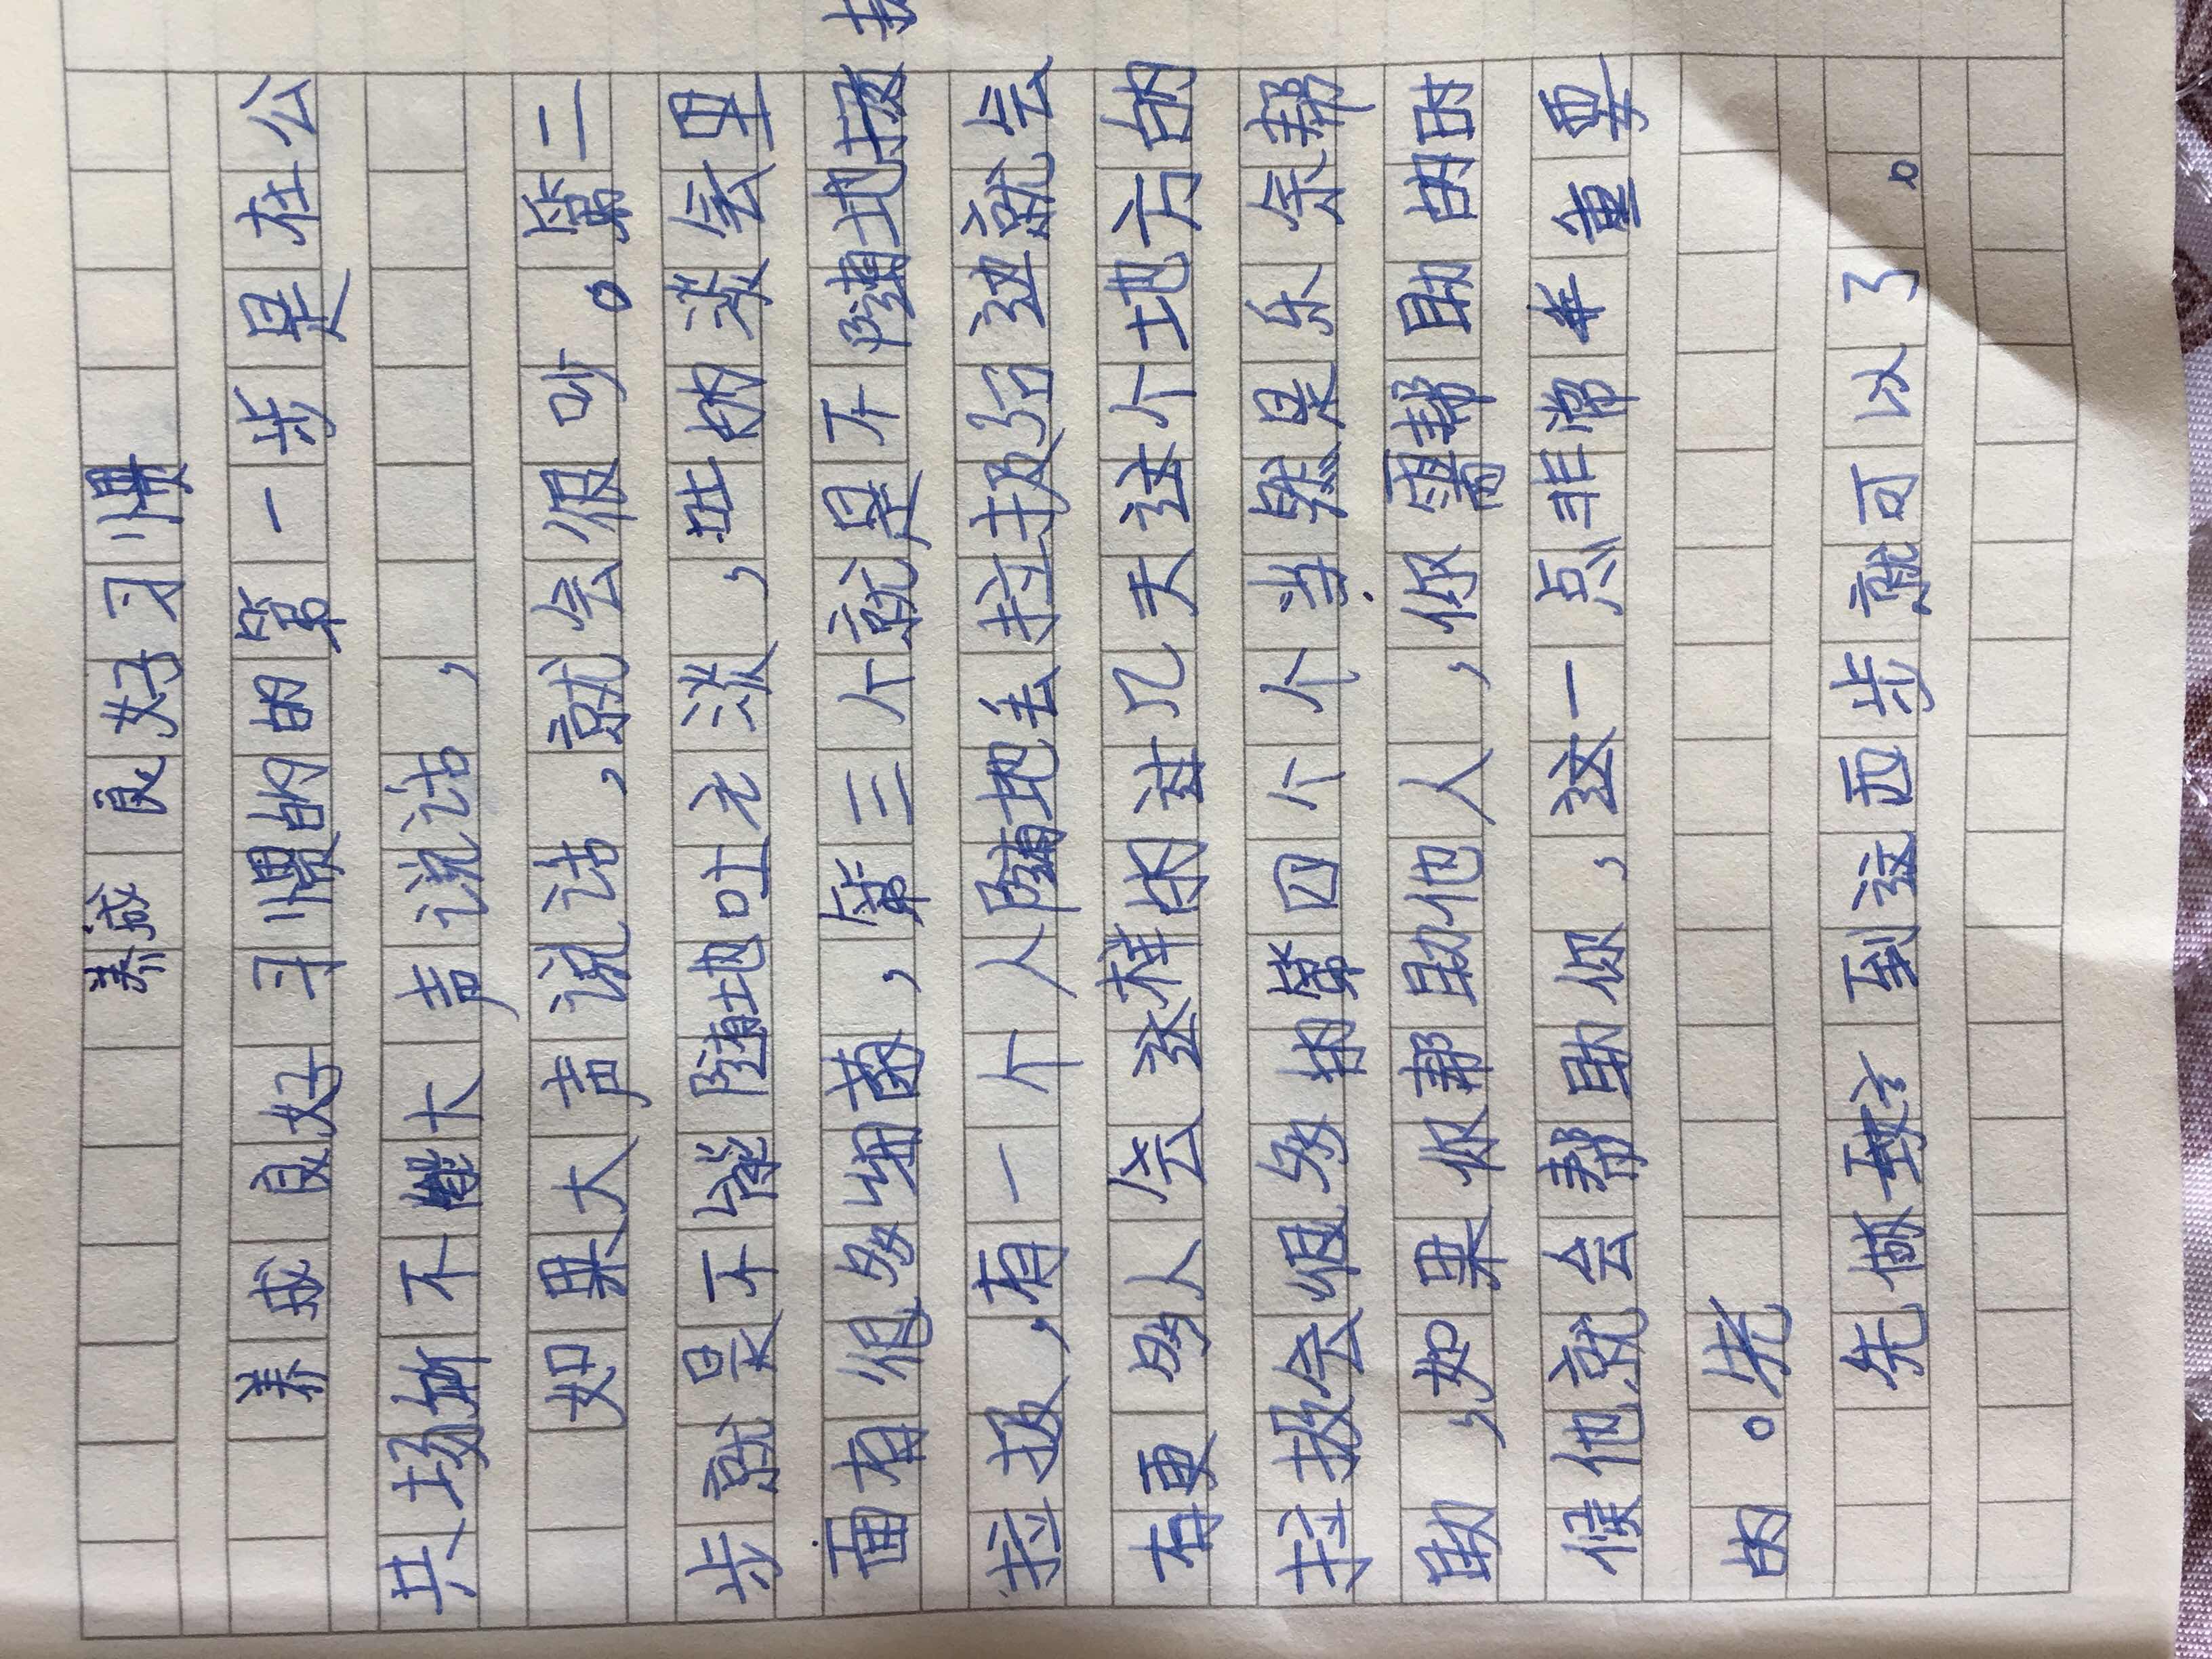 养成良好习惯
养成良好习惯的的第一步是在公
共场所不能大声说话，
如果大声说话，就会很吵。第二
步就是不能随地吐痰，吐的痰会里
面有很多细菌，第三个就是不随地扔
垃圾，有一个人随地丢垃圾到这就会
有更多人会这样的过几天这个地方的
垃圾会很多的第四个个当然是乐余帮
助，如果你帮助他人，你需帮助的时
候他就会帮助你，这一点非常重要
的。先
先做到这西步就可以了。